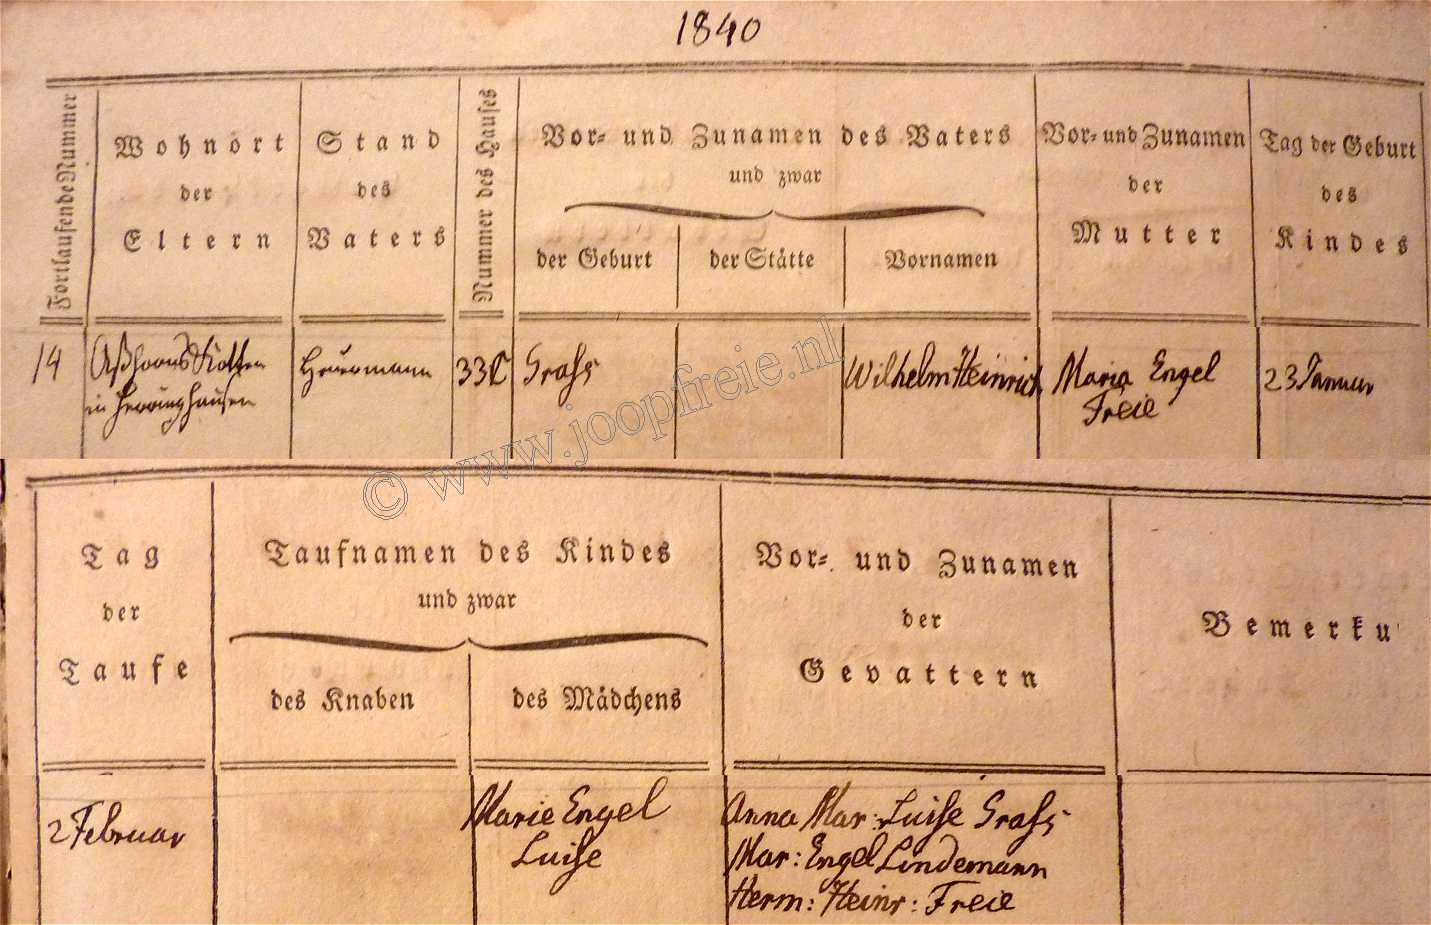 1840
Fortlaufende Nummer
Wohnort
der
Eltern
Stand
des
Vaters
Nummer des Hauses
Vor- und Zunamen des Vaters
und zwar
der Geburt
der Stätte
Vornamen
Vor- und Zunamen
der
Mutter
Tag der Geburt
des
Kindes
14
Kotten
in Herringhausen
Heuermann
33C
Wilhelm Heinrich
Maria Engel
Freie
23 Januar
© www.joopfreie.nl
Tag
der
Taufe
Taufnamen des Kindes
und zwar
des Knaben
des Mädchens
Vor- und Zunamen
der
Gevattern
Bemerku
2 Februar
Marie Engel
Luise
Anna Mar: Luise
Mar: Engel Lindemann
Herm: Heinr: Freie